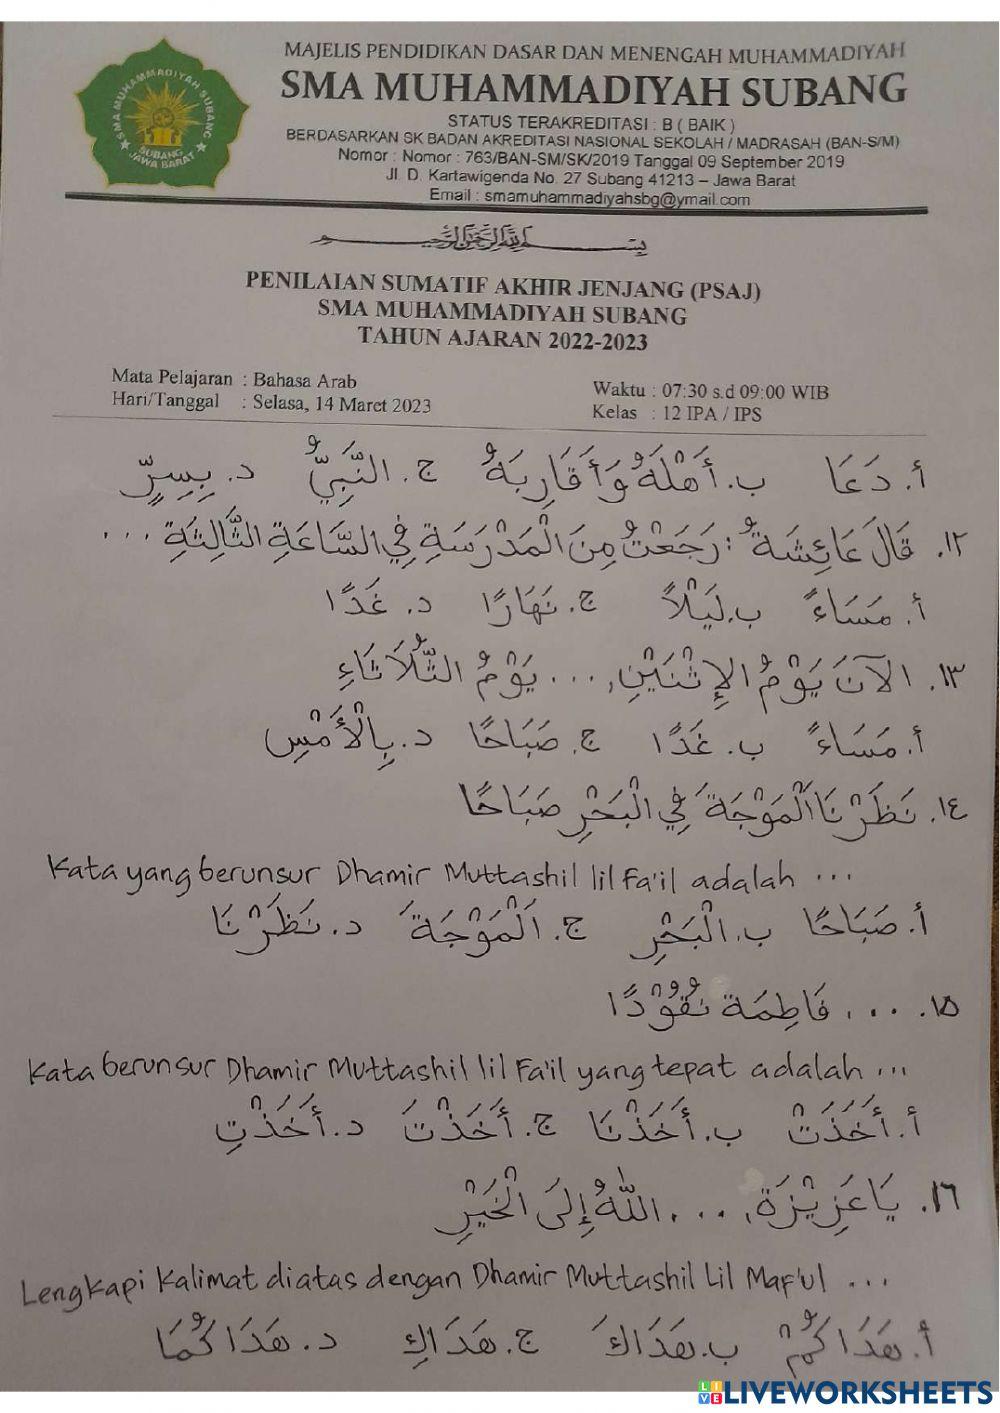 SMA MUHAMMADIYAH SUBANG
SUBANG
JAWA BARAT
MAJELIS PENDIDIKAN DASAR DAN MENENGAH MUHAMMADIYAH
SMA MUHAMMADIYAH SUBANG
STATUS TERAKREDITASI : B ( BAIK )
BERDASARKAN SK BADAN AKREDITASI NASIONAL SEKOLAH / MADRASAH (BAN-S/M)
Nomor : Nomor : 763/BAN-SM/SK/2019 Tanggal 09 September 2019
Jl. D. Kartawigenda No. 27 Subang 41213 – Jawa Barat
Email : smamuhammadiyahsbg@ymail.com
بسم الله الرحمن الرحيم
PENILAIAN SUMATIF AKHIR JENJANG (PSAJ)
SMA MUHAMMADIYAH SUBANG
TAHUN AJARAN 2022-2023
Mata Pelajaran : Bahasa Arab
Hari/Tanggal : Selasa, 14 Maret 2023
Waktu : 07:30 s.d 09:00 WIB
Kelas : 12 IPA / IPS
أ. دَعَا ب. أَهْلَهُ وَأَقَارِبَهُ ج. النَّبِيُّ د. بِسِرٍّ
١٢. قَالَ عَائِشَةُ : رَجَعْتُ مِنَ الْمَدْرَسَةِ فِي السَّاعَةِ الثَّالِثَةِ ...
أ. مَسَاءً ب. لَيْلاً ج. نَهَارًا د. غَدًا
١٣. الآنَ يَوْمُ الإِثْنَيْنِ, ... يَوْمُ الثُّلاَثَاءِ
أ. مَسَاءً ب. غَدًا ج. صَبَاحًا د. بِالْأَمْسِ
١٤. نَظَرْنَا الْمَوْجَةَ فِي الْبَحْرِ صَبَاحًا
Kata yang berunsur Dhamir Muttashil lil Fa'il adalah ...
أ. صَبَاحًا ب. الْبَحْرِ ج. الْمَوْجَةَ د. نَظَرْنَا
١٥. ... فَاطِمَة نُقُوْدًا
Kata berunsur Dhamir Muttashil lil Fa'il yang tepat adalah ...
أ. أَخَذَتْ ب. أَخَذْنَا ج. أَخَذْتَ د. أَخَذْتِ
١٦. يَا عَزِيْزَة, ... اللّٰهُ إِلَى الْخَيْرِ
Lengkapi Kalimat diatas dengan Dhamir Muttashil Lil Maf'ul ...
أ. هَدَاكُمْ ب. هَدَاكَ ج. هَدَاكِ د. هَدَاكُمَا
LIVEWORKSHEETS